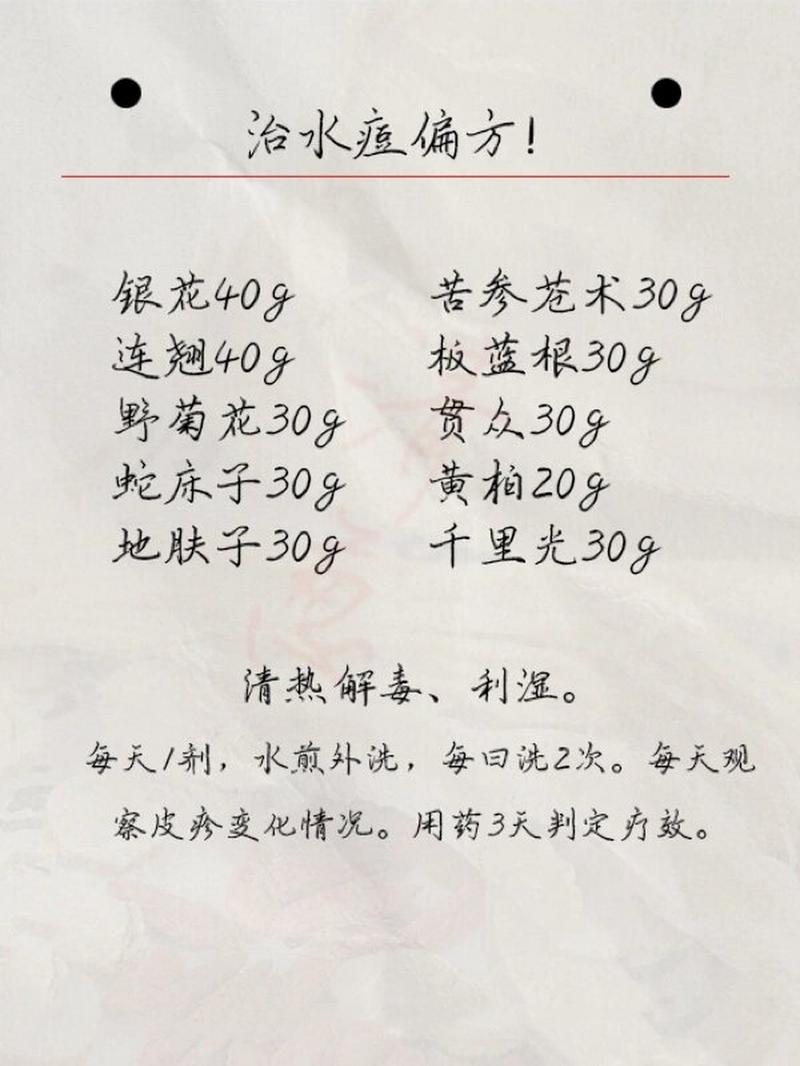 治水痘偏方!
银花40g
连翘40g
野菊花30g
蛇床子30g
地肤子30g
苦参苍术30g
板蓝根30g
贯众30g
黄柏20g
千里光30g
清热解毒、利湿。
每天1剂，水煎外洗，每日洗2次。每天观
察皮疹变化情况。用药3天判定疗效。